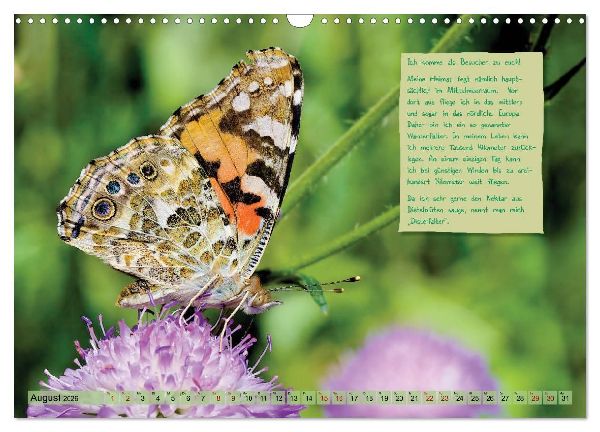 Ich komme als Besucher zu euch!
Meine Heimat liegt nämlich haupt-
sächlich im Mittelmeerraum. Von
dort aus fliege ich in das mittlere
und sogar in das nördliche Europa.
Daher bin ich ein so genannter
Wanderfalter. In meinem Leben kann
ich mehrere Tausend Kilometer zurück-
legen. An einem einzigen Tag kann
ich bei günstigen Winden bis zu drei-
hundert Kilometer weit fliegen.
Da ich sehr gerne den Nektar aus
Distelblüten sauge, nennt man mich
„Distelfalter“.
August 2026 1 2 3 4 5 6 7 8 9 10 11 12 13 14 15 16 17 18 19 20 21 22 23 24 25 26 27 28 29 30 31